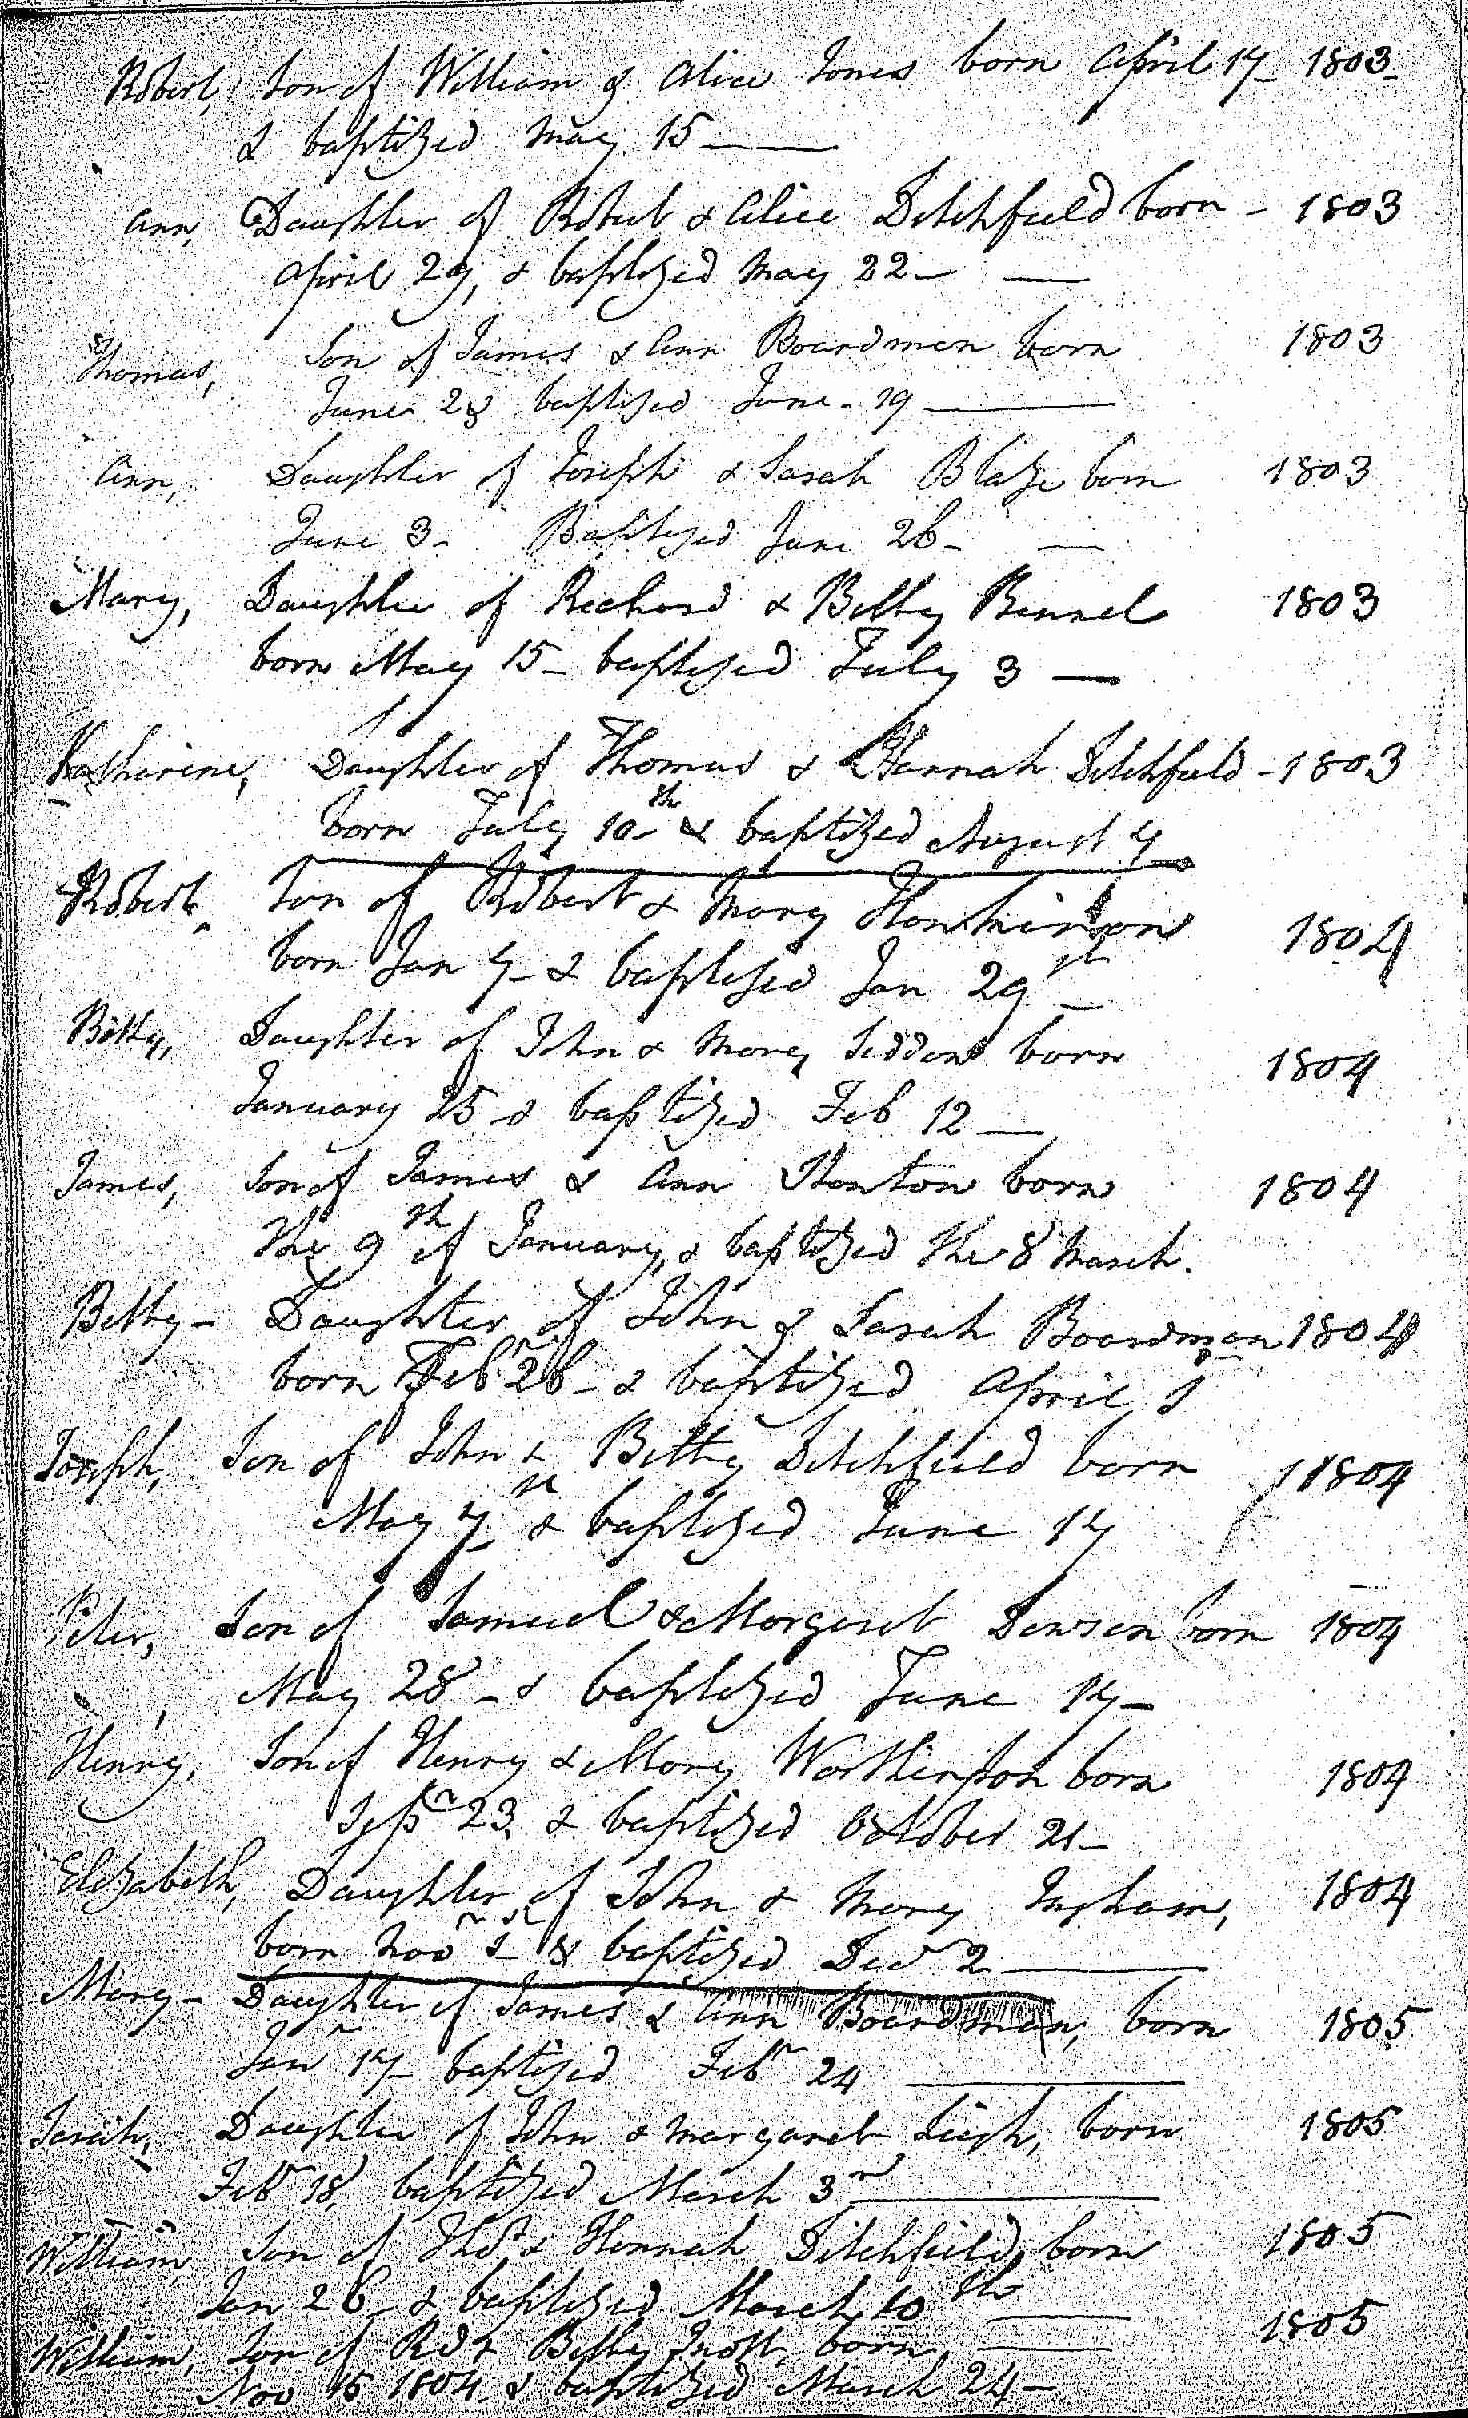 Robert, Son of William & Alice Jones born April 17 - 1803 -
& baptized May 15 -
Ann, Daughter of Robert & Alice Ditchfield born - 1803
April 29, & baptized May 22 -
Thomas, Son of James & Ann Boardman born 1803
June 2 & baptized June - 19
Ann, Daughter of Joseph & Sarah Blaze born 1803
June 3 - Baptized June 26 -
Mary, Daughter of Richard & Betty Bennel 1803
born May 15 - baptized July 3
Katharine, Daughter of Thomas & Hannah Ditchfield - 1803
born July 10th & baptized August 7
Robert, Son of Robert & Mary 1804
born Jan 7 - & baptized Jan 29th
Betty, Daughter of John & Mary Seddon born 1804
January 25 & baptized Feb 12
James, Son of James & Ann Horton born 1804
the 9th of January, & baptized the 8 March.
Betty - Daughter of John & Sarah Boardman 1804
born Febr 26 - & baptized April 1
Joseph, Son of John & Betty Ditchfield born 1804
May 7th & baptized June 17
Peter, Son of Samuel & Margaret Dawson born 1804
May 28 - & baptized June 17 -
Henry, Son of Henry & Mary Worthington born 1804
Sepr 23, & baptized October 21 -
Elizabeth, Daughter of John & Mary Ingham, 1804
born Novr 1st & baptized Decr 2
Mary - Daughter of James & Ann Boardman, born 1805
Janr 17 - baptized Febr 24
Sarah, Daughter of John & Margaret Leigh, born 1805
Febr 18, baptized March 3rd
William, Son of Thos & Hannah Ditchfield, born 1805
Jan 26 - & baptized March 10th
William, Son of Rd & Betty Knott, born 1805
Nov 15 1804 & baptized March 24 -